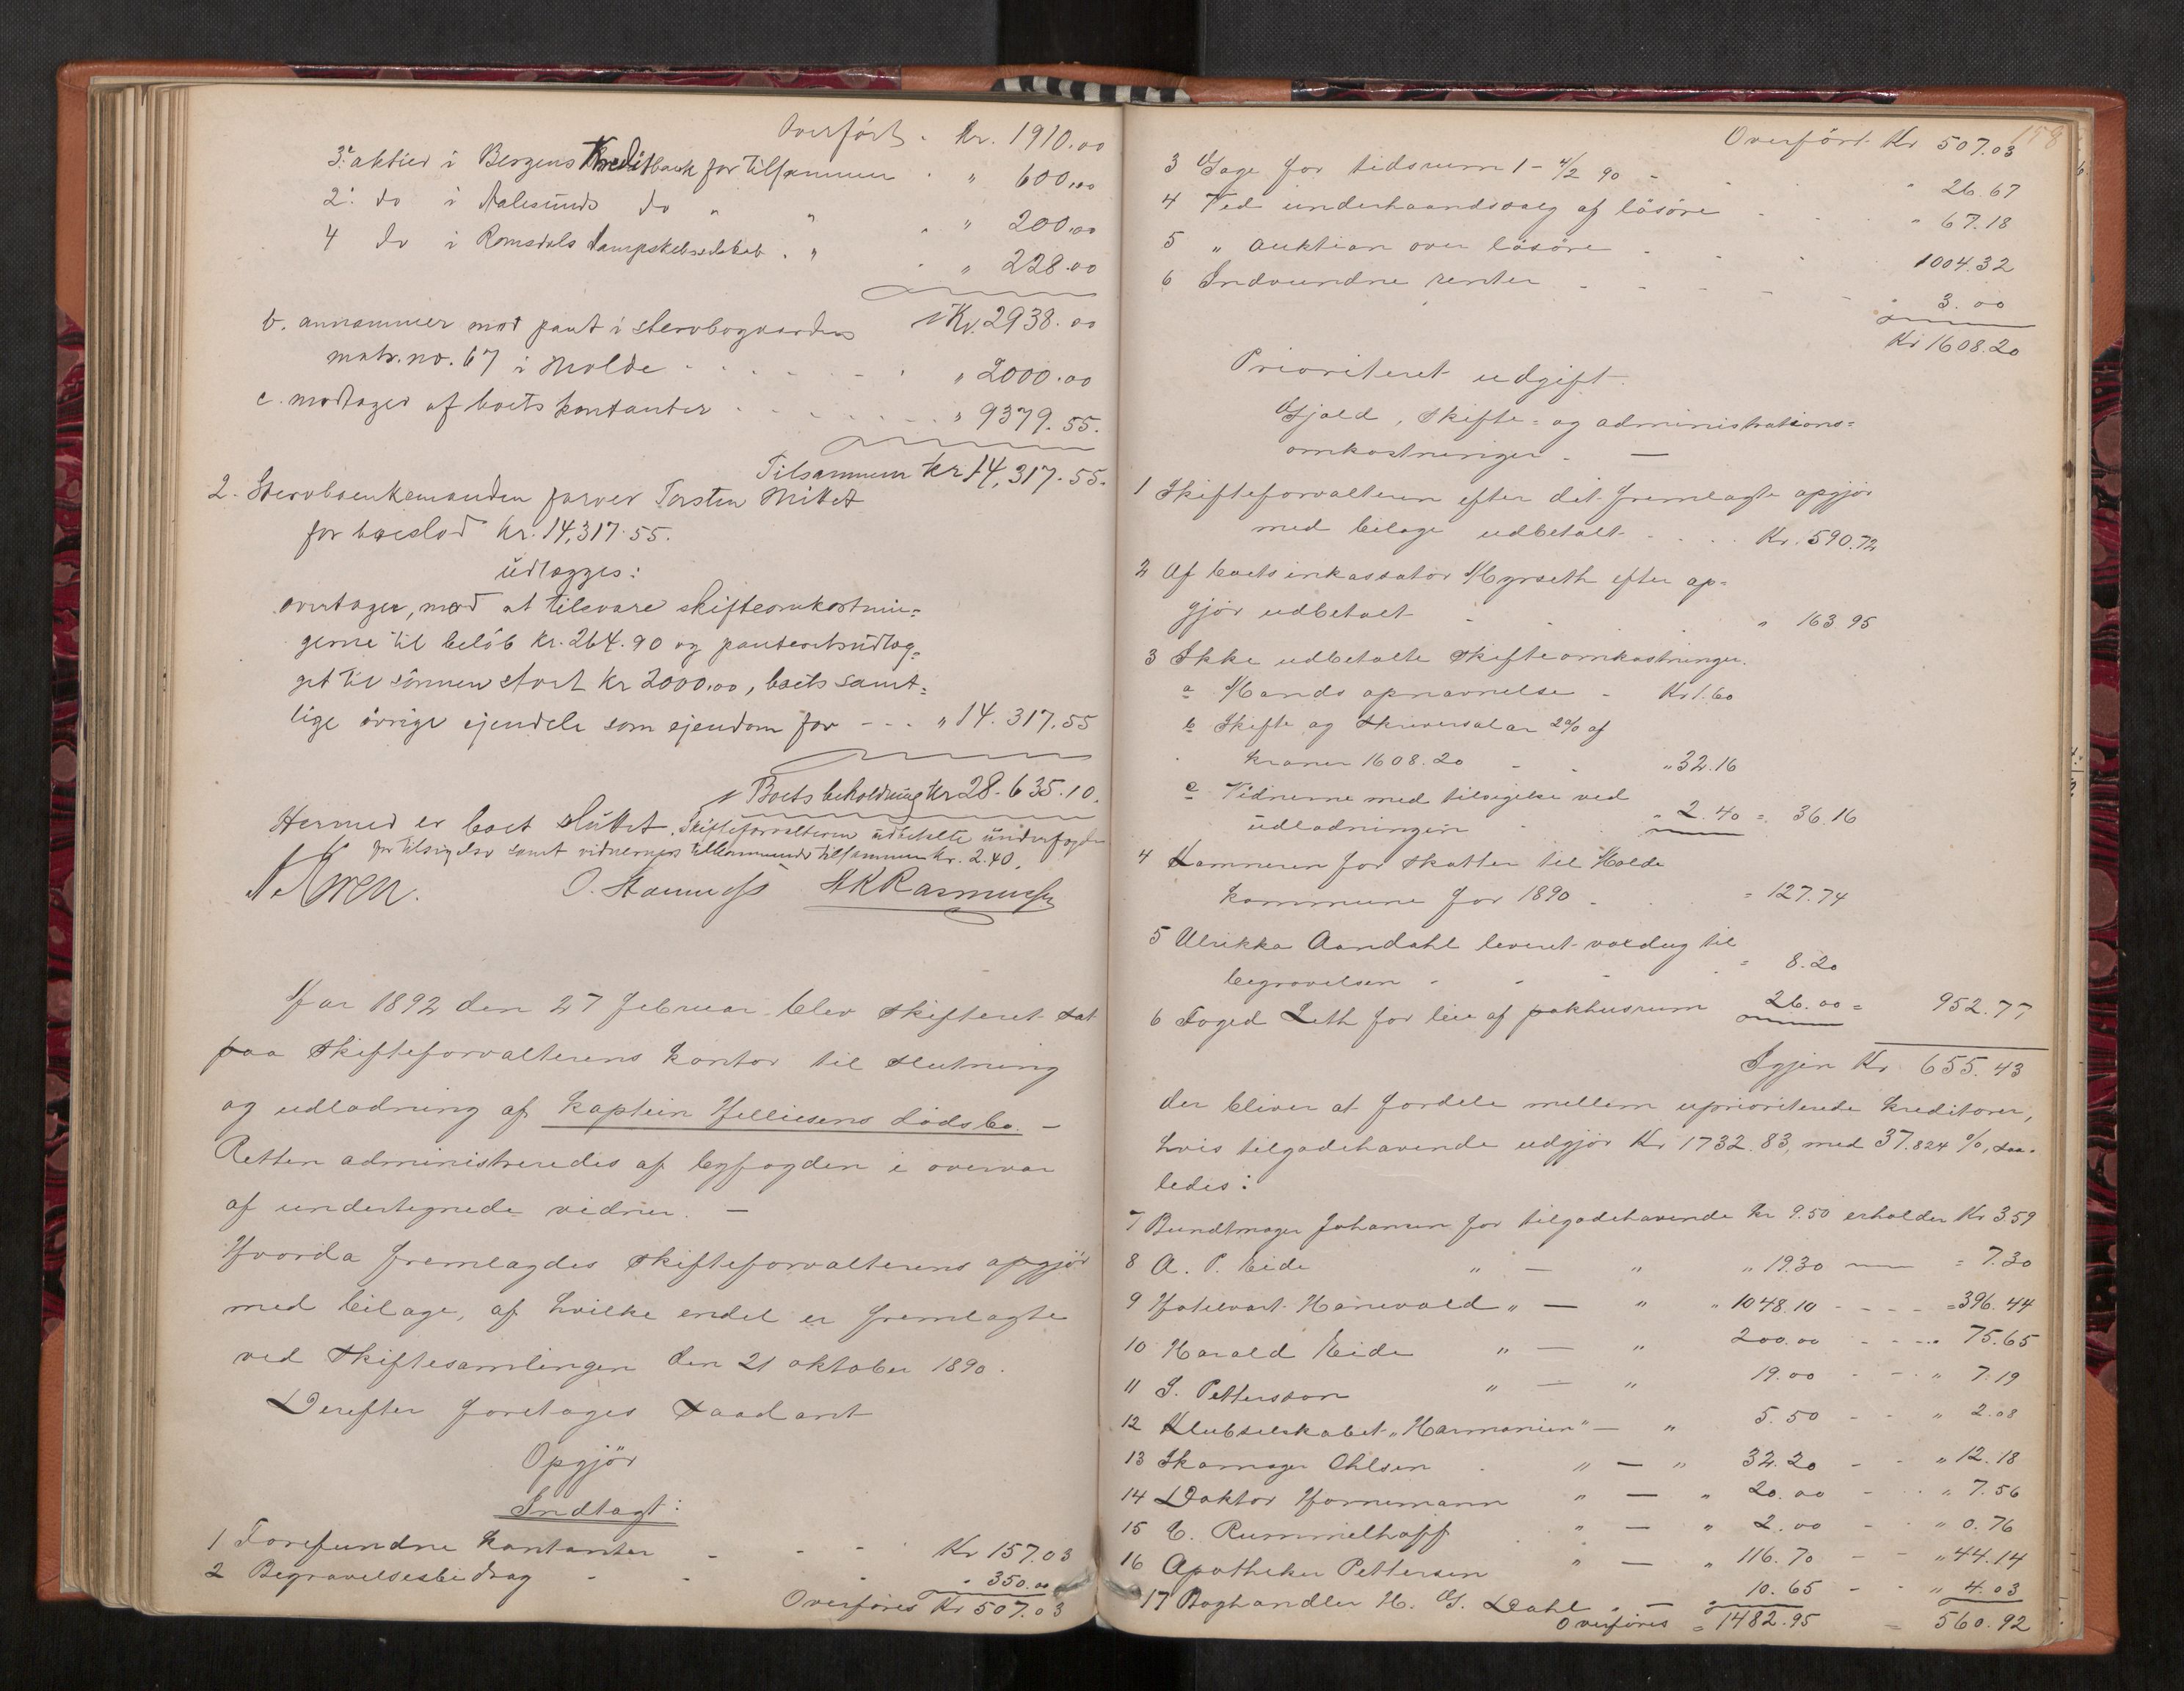 Overført . Kr. 1910.00
3 aktier i Bergens Kreditbank for tilsammen . " 600.00
2 do i Aalesunds do " " . " 200.00
4 do i Romsdals dampskibsselskab . " . " 228.00
Kr. 2938.00
b. annammer mod pant i stervbogaarden
matr. no. 67 i Molde . . . . " 2000.00
c. modtager af boets kontanter . . . . " 9379.55.
Tilsammen Kr 14,317.55.
2. Stervboenkemanden farver Torsten Mittet
for boeslod Kr. 14,317.55.
udlægges:
overtager, mod at tilsvare skifteomkostnin=
gerne til beløb Kr. 264.90 og panteretsudlæg=
get til sønnen stort Kr 2000.00, boets samt=
lige øvrige ejendele som ejendom for - - - " 14.317.55
Boets beholdning Kr 28.635.10.
Hermed er boet sluttet. Skifteforvalteren udbetalte underfogden
for tilsigelse samt vidnerne tilkommende tilsammen Kr. 2.40.
HKRasmussen
Aar 1892 den 27 februar blev skifteret sat
paa skifteforvalterens kontor til slutning
og udlodning af kaptein Helliesens dødsbo. —
Retten administreredes af byfogden i overvær
af undertegnede vidner. —
Hvorda fremlagdes skifteforvalterens opgjør
med bilage, af hvilke endel er fremlagte
ved skiftesamlingen den 21 oktober 1890.
Derefter foretoges saadant
Opgjør
Indtægt:
1 Forefundne kontanter - - - Kr 157.03
2 Begravelsesbidrag - - - " 350.00
Overføres Kr 507.03
158
Overført Kr 507.03
3 Gage for tidsrum 1 - 4/2 90 - - " 26.67
4 Ved underhaandssalg af løsøre - - " 67.18
5 " auktion over løsøre - - 1004.32
6 Indvundne renter - - - - " 3.00
Kr 1608.20
Prioriteret udgift.
Gjæld, skifte- og administrations=
omkostninger. —
1 Skifteforvalteren efter det fremlagte opgjør
med bilage udbetalt . . . . Kr. 590.72
2 Af boets inkassator Myrseth efter op=
gjør udbetalt - - " 163.95
3 Ikke udbetalte skifteomkostninger.
a Mands opnævnelse - Kr 1.60
b Skifte og skriversalær 2% af
kroner 1608.20 - - " 32.16
c Vidnerne med tilsigelse ved
udlodningen - " 2.40 = 36.16
4 Kæmneren for skatter til Molde
kommune for 1890 - = 127.74
5 Ulrikka Aandahl leveret voxdug til
begravelsen - - - = 8.20
6 Foged Leth for leie af pakhusrum 26.00 = 952.77
Igjen Kr. 655.43
der bliver at fordele mellem uprioriterede kreditorer,
hvis tilgodehavende udgjør Kr 1732.83, med 37.824 %, saa-
ledes:
7 Bundtmager Johansen for tilgodehavende Kr 9.50 erholder Kr 3.59
8 A. P. Eide " — " " 19.30 — = 7.30
9 Hotelvært Harwold " — " " 1048.10 - - - - = 396.44
10 Harald Eide " — " 200.00 - - - - 75.65
11 J. Pettersson " — " 19.00 - - " 7.19
12 Klubselskabet "Harmonien" — " 5.50 - - " 2.08
13 Skomager Ohlsen . " — " 32.20 - - " 12.18
14 Doktor Hornemann " — " 20.00 - - " 7.56
15 E. Rummelhoff . " — " 2.00 - - " 0.76
16 Apotheker Pettersen " — " 116.70 - - " 44.14
17 Boghandler H. G. Dahl . — " 10.65 - - " 4.03
Overføres = 1482.95 = 560.92